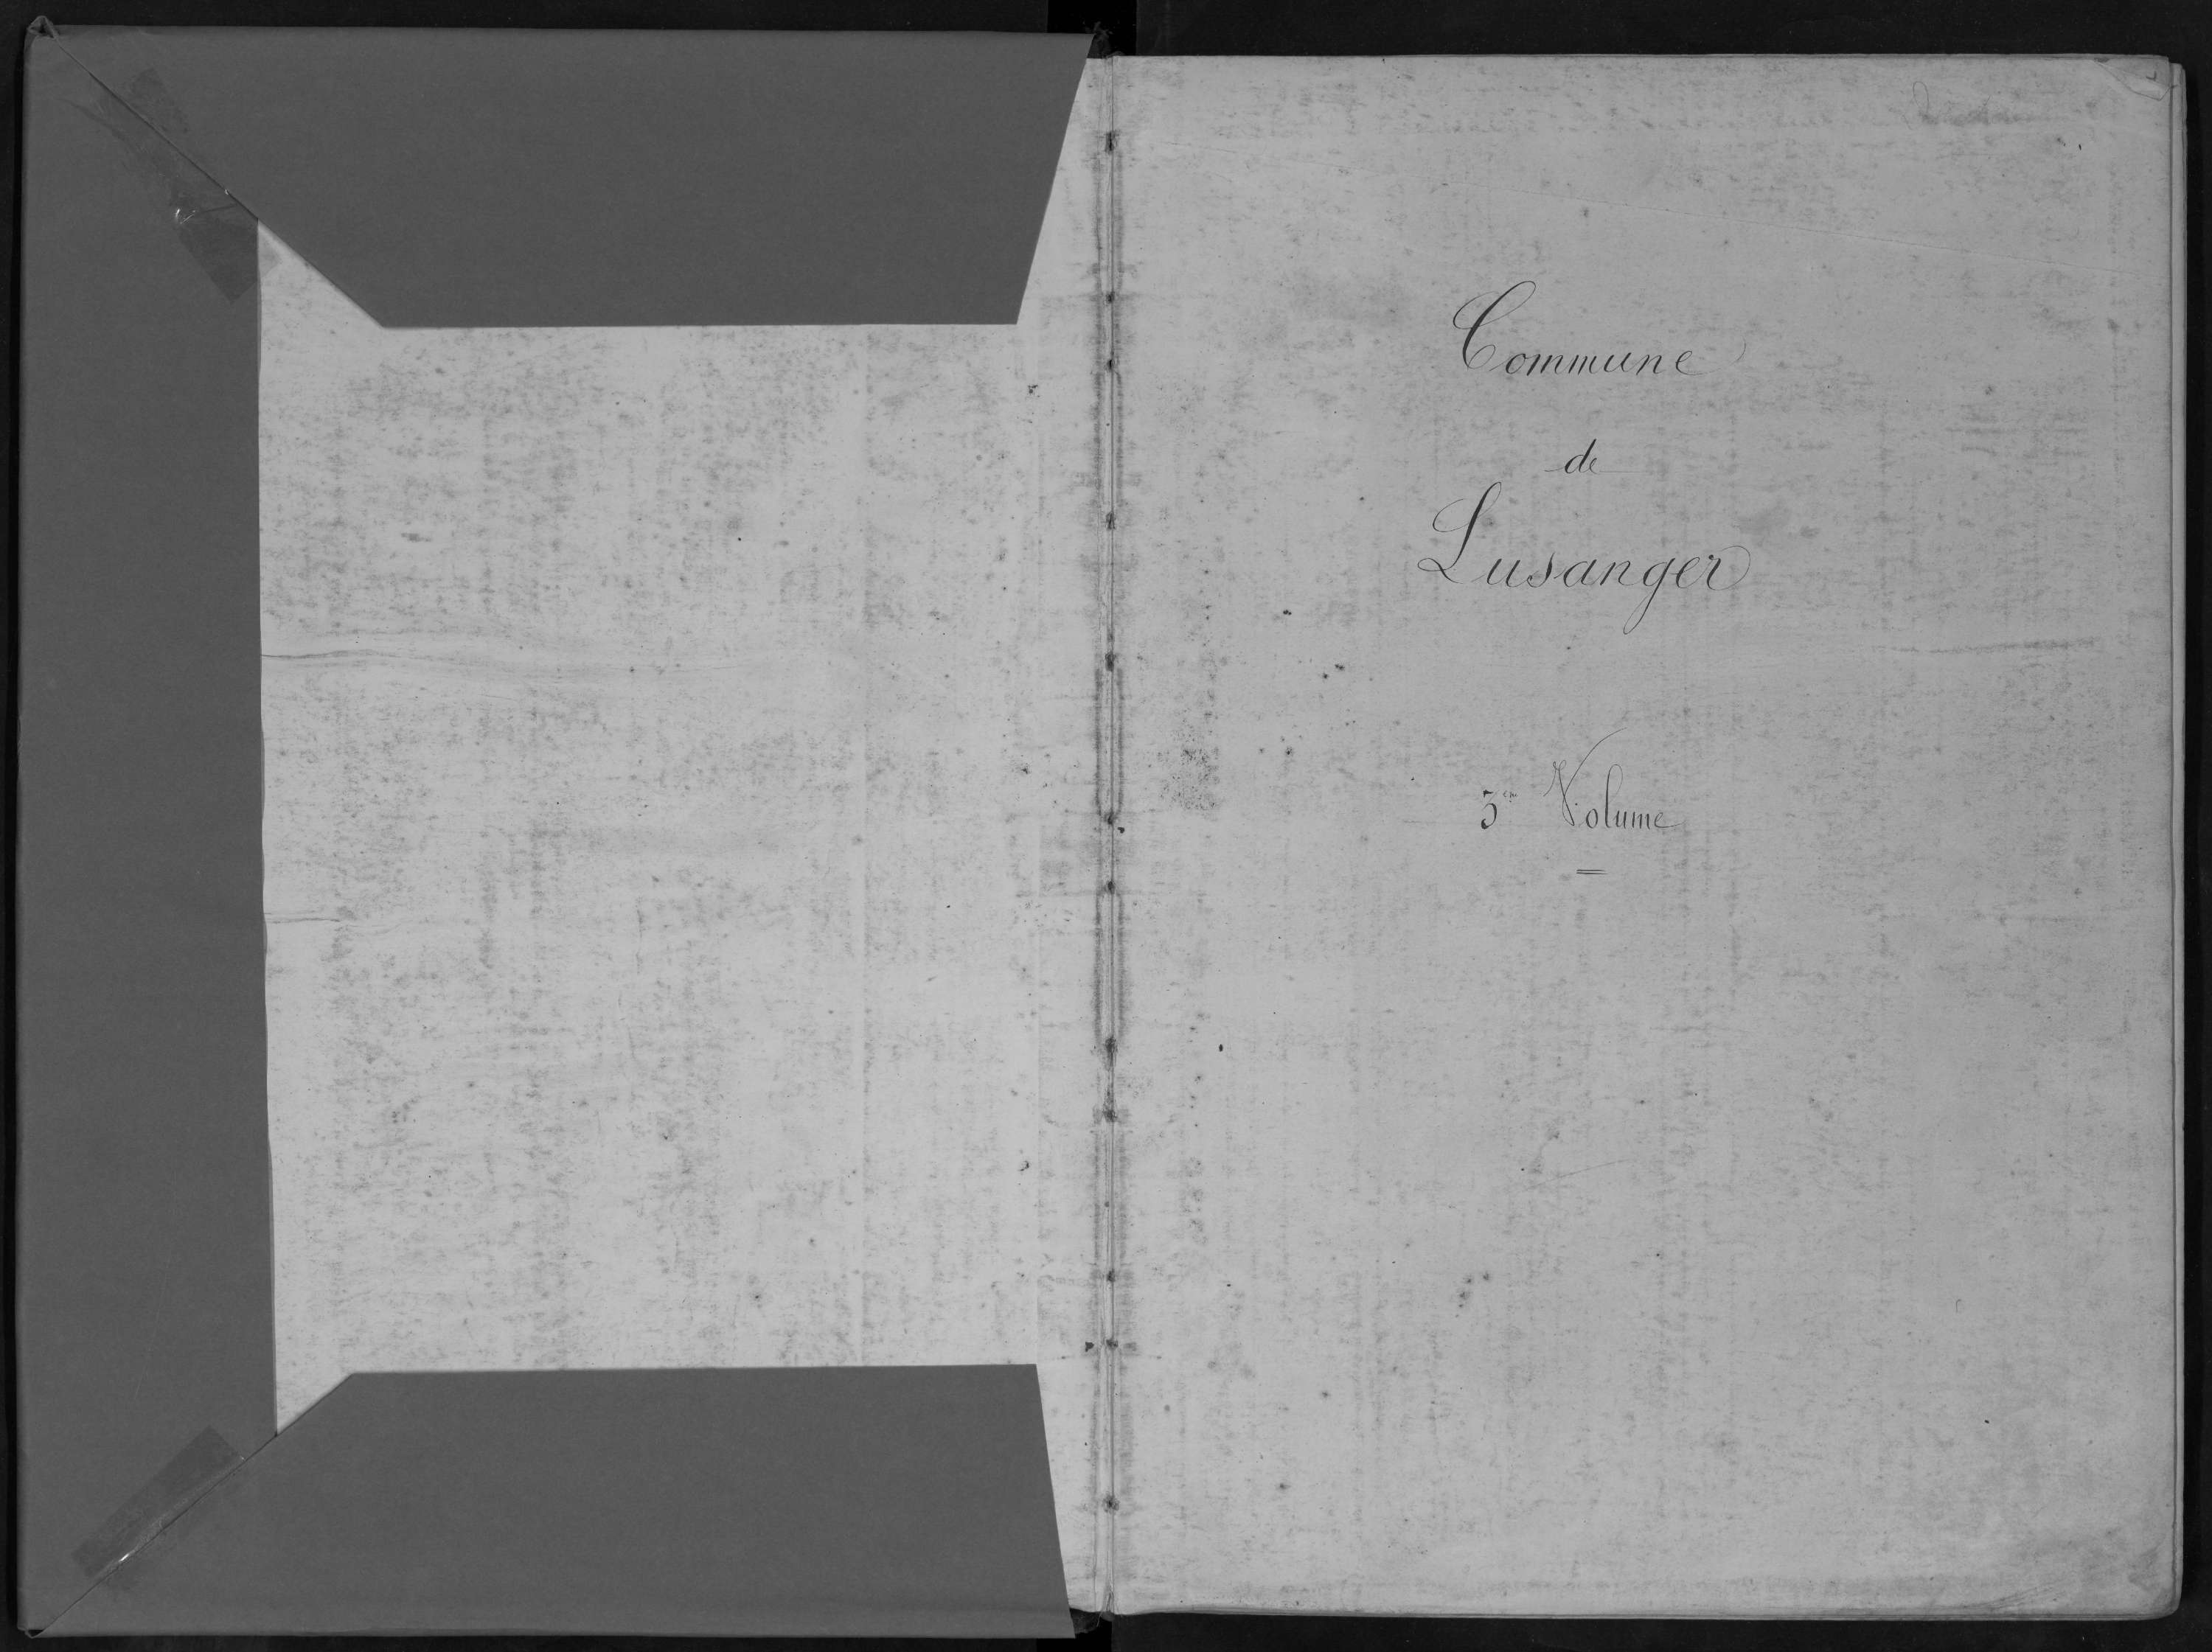 Commune
de
Lusanger
3eme Volume